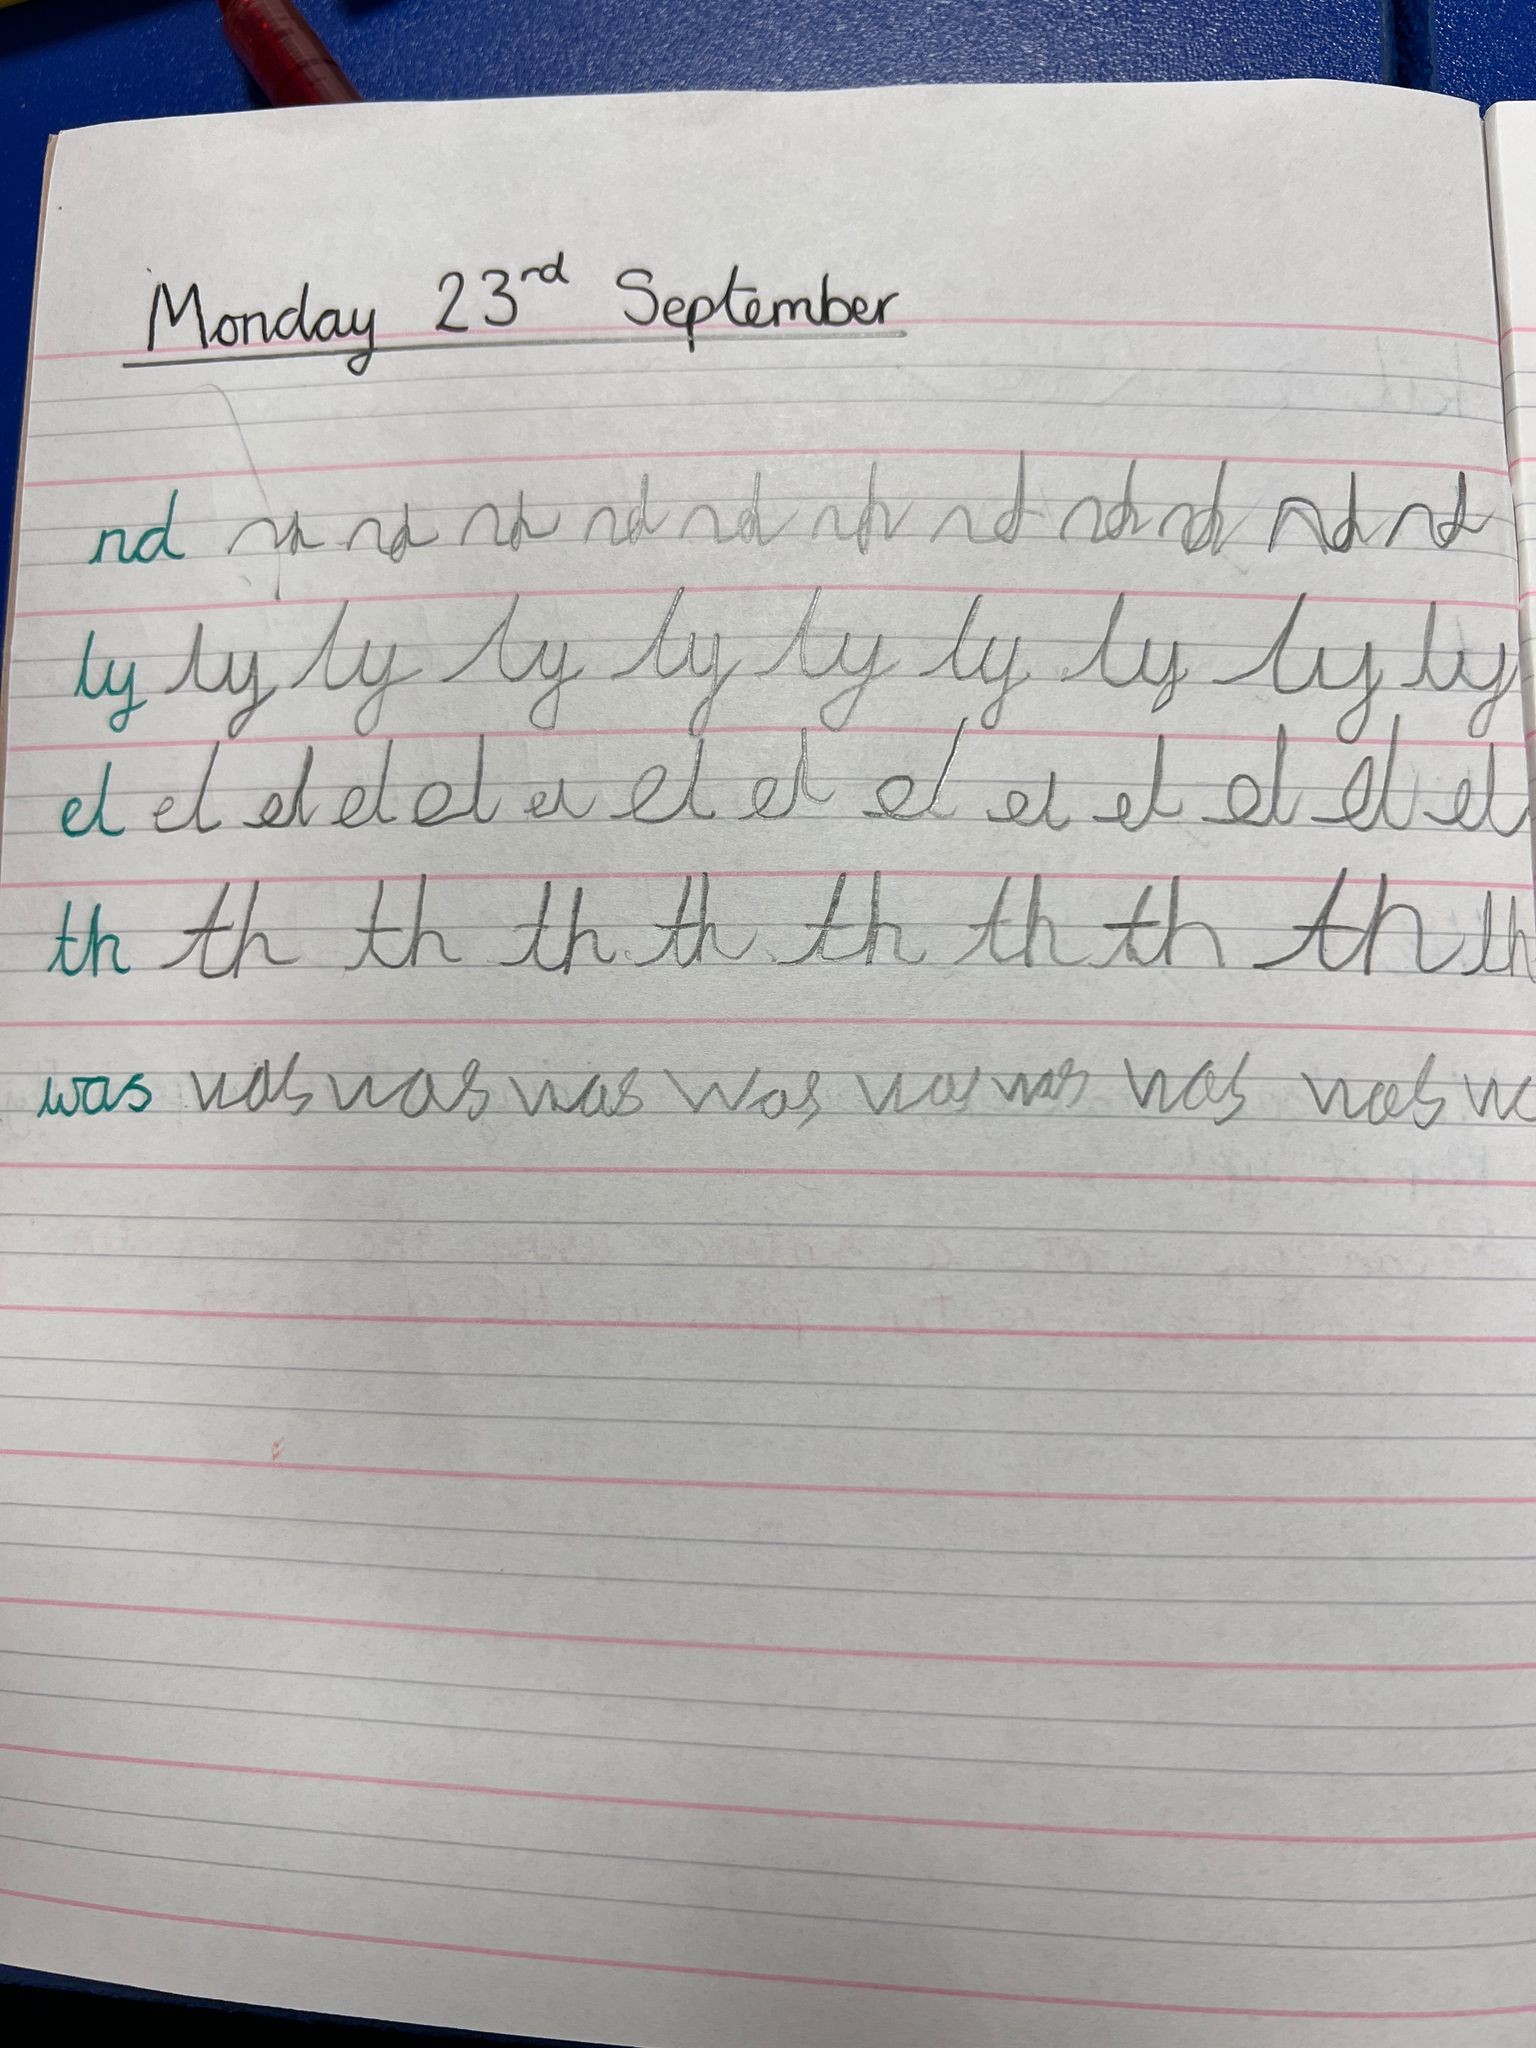 Monday 23rd September
nd nd nd nd nd nd nd nd nd nd nd nd
ly ly ly ly ly ly ly ly ly ly
el el el el el el el el el el el el el
th th th th th th th th th th
was was was was was was was was was